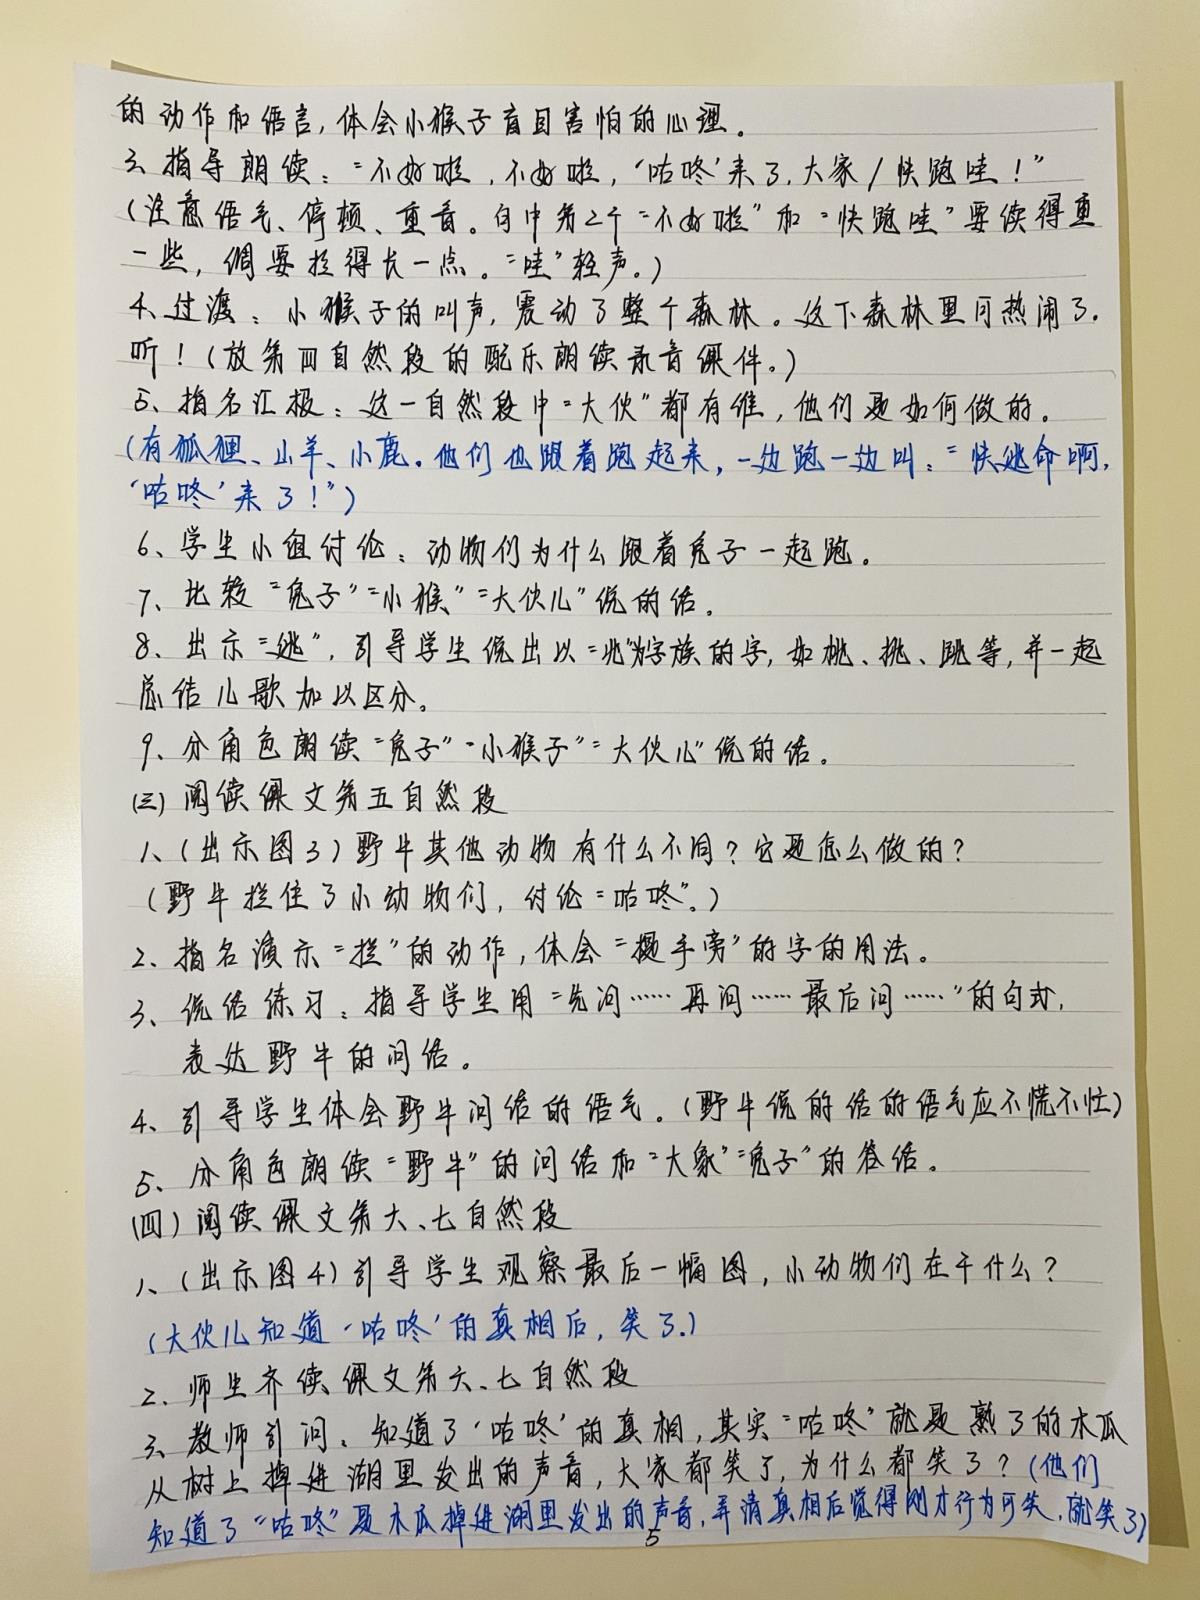 的动作和语言,体会小猴子盲目害怕的心理。
3、指导朗读:“不好啦,不好啦,‘咕咚’来了,大家/快跑哇!”
(注意语气、停顿、重音。句中第2个“不好啦”和“快跑哇”要读得重
一些,调要拉得长一点。“哇”轻声。)
4、过渡:小猴子的叫声,震动了整个森林。这下森林里可热闹了。
听!(放第四自然段的配乐朗读录音课件。)
5、指名汇报:这一自然段中“大伙”都有谁,他们是如何做的。
(有狐狸、山羊、小鹿。他们也跟着跑起来,一边跑一边叫:“快逃命啊,
‘咕咚’来了!”)
6、学生小组讨论:动物们为什么跟着兔子一起跑。
7、比较“兔子”“小猴”“大伙儿”说的话。
8、出示“逃”,引导学生说出以“兆”为字族的字,如桃、挑、跳等,并一起
总结儿歌加以区分。
9、分角色朗读“兔子”“小猴子”“大伙儿”说的话。
(三)阅读课文第五自然段
1、(出示图3)野牛其他动物有什么不同?它是怎么做的?
(野牛拦住了小动物们,讨论“咕咚”。)
2、指名演示“拦”的动作,体会“提手旁”的字的用法。
3、说话练习:指导学生用“先问……再问……最后问……”的句式,
表达野牛的问话。
4、引导学生体会野牛问话的语气。(野牛说的话的语气应不慌不忙)
5、分角色朗读“野牛”的问话和“大家”“兔子”的答话。
(四)阅读课文第六、七自然段
1、(出示图4)引导学生观察最后一幅图,小动物们在干什么?
(大伙儿知道‘咕咚’的真相后,笑了。)
2、师生齐读课文第六、七自然段
3、教师引问:知道了‘咕咚’的真相,其实“咕咚”就是熟了的木瓜
从树上掉进湖里发出的声音,大家都笑了,为什么都笑了?(他们
知道了“咕咚”是木瓜掉进湖里发出的声音,弄清真相后觉得刚才行为可笑,就笑了)
5